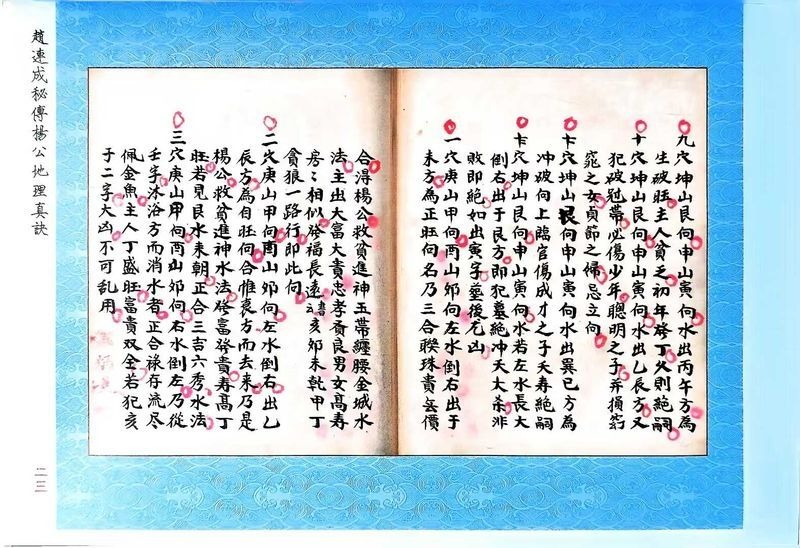 九穴坤山艮向申山寅向水出丙午方為
生破旺主人貧乏初年發丁久則絕嗣
十穴坤山艮向申山寅向水出乙辰方又
犯破冠帶必傷少年聰明之子并損窈
窕之女貞節之婦忌立向
十穴坤山艮向申山寅向水出巽巳方為
冲破向上臨官傷成才之子夭寿絕嗣
十穴坤山艮向申山寅向水若左水長大
倒右出于艮方即犯墓絕冲天大杀非
敗即絕如出寅字葬後尤凶
一穴庚山甲向酉山卯向左水倒右出于
未方為正旺向名乃三合聯珠貴無價
合得楊公救貧進神玉帶纏腰金城水
法主出大富大貴忠孝賢良男女高寿
房房相似發福長遠書亥卯未乾甲丁
貪狼一路行即此向
二穴庚山甲向酉山卯向左水倒右出乙
辰方為自旺向合惟衰方而去來乃是
楊公救貧進神水法發富發貴寿高丁
旺若見艮水來朝正合三吉六秀水法
三穴庚山甲向酉山卯向右水倒左乃從
壬字沐浴方而消水者正合祿存流尽
佩金魚主人丁盛旺富貴双全若犯亥
子二字大凶不可乱用
趙連成秘傳楊公地理真訣
二三